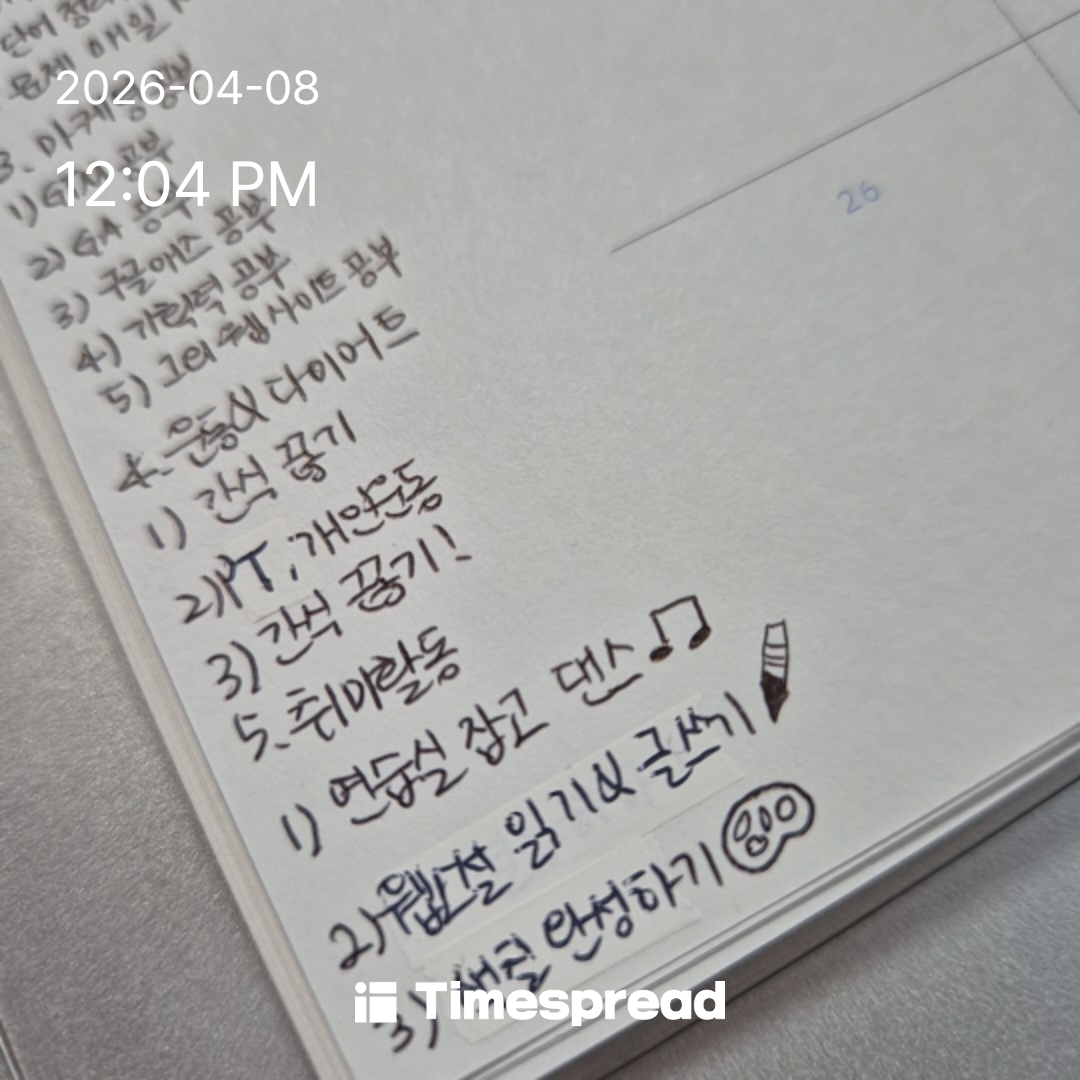 단어 정리
문제 매일
2026-04-08
3. 마케팅
12:04 PM
1) 공부
2) GA 공부
3) 구글애즈 공부
4) 기획력 공부
5) 그외 웹사이트 공부
26
4. 운동 & 다이어트
1) 간식 끊기
2) PT, 개인운동
3) 간식 끊기!
5. 취미활동
1) 연습실 잡고 댄스
2) 웹소설 읽기 & 글쓰기
3) 색칠 완성하기
Timespread